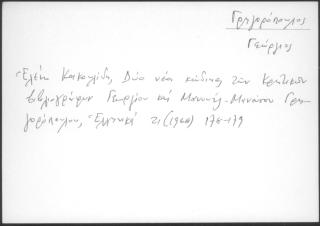 Γρηγορόπουλος
Γεώργιος
Ἑλένη Κακουλίδη, Δύο νέοι κώδικες τῶν Κρητικῶν
βιβλιογράφων Γεωργίου καὶ Μανουήλ Γρη-
γορόπουλου, Ἑλληνικά 21 (1968) 176-179